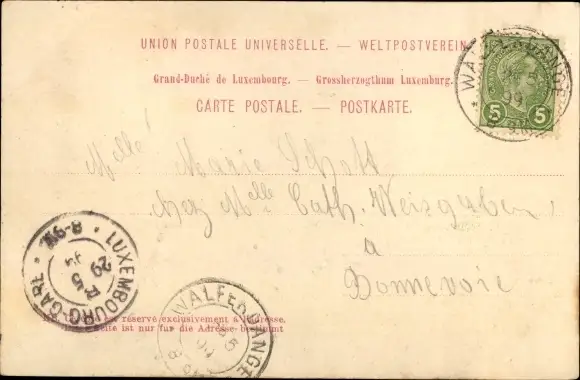 UNION POSTALE UNIVERSELLE. — WELTPOSTVEREIN
Grand-Duché de Luxembourg. — Grossherzogthum Luxemburg.
CARTE POSTALE. — POSTKARTE.
WALFERDANGE
5 5
Melle Marie Schott
chez Melle Cath. Weisgerber
à
Bonnevoie
LUXEMBOURG-GARE
8-9
29
WALFERDANGE
réservé exclusivement à l'adresse.
Seite ist nur für die Adresse bestimmt